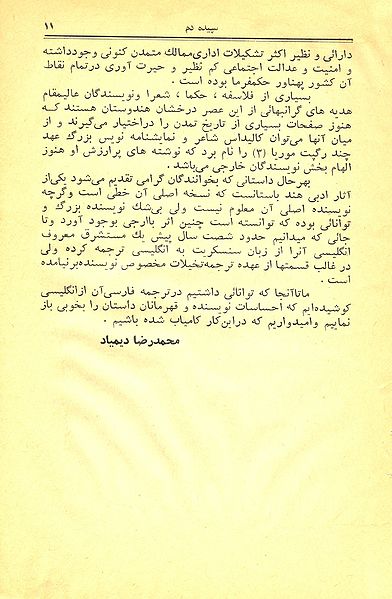 سپیده دم
۱۱
دارائی و نظیر اکثر تشکیلات اداری ممالک متمدن کنونی وجود داشته
و امنیت و عدالت اجتماعی کم نظیر و حیرت آوری درتمام نقاط
آن کشور پهناور حکمفرما بوده است .
بسیاری از فلاسفه ، حکما ، شعرا و نویسندگان عالیمقام
هدیه های گرانبهائی از این عصر درخشان هندوستان هستند که
هنوز صفحات بسیاری از تاریخ تمدن را دراختیار می‌گیرند و از
میان آنها می‌توان کالیداس شاعر و نمایشنامه نویس بزرگ عهد
چند رگپت موریا (۳) را نام برد که نوشته های پرارزش او هنوز
الهام بخش نویسندگان خارجی می‌باشد .
بهرحال داستانی که بخوانندگان گرامی تقدیم می‌شود یکی‌از
آثار ادبی هند باستانست که نسخه اصلی آن خطی است وگرچه
نویسنده اصلی آن معلوم نیست ولی بی‌شك نویسنده بزرگ و
توانائی بوده که توانسته است چنین اثر باارجی بوجود آورد وتا
جائی که میدانیم حدود شصت سال پیش یك مستشرق معروف
انگلیسی آنرا از زبان سنسکریت به انگلیسی ترجمه کرده ولی
در غالب قسمتها از عهده ترجمه‌تخیلات مخصوص نویسنده‌برنیامده
است .
ماتاآنجا که توانائی داشتیم درترجمه فارسی‌آن ازانگلیسی
کوشیده‌ایم که احساسات نویسنده و قهرمانان داستان را بخوبی باز
نمائیم وامیدواریم که دراین‌کار کامیاب شده باشیم .
محمدرضا دیمیاد